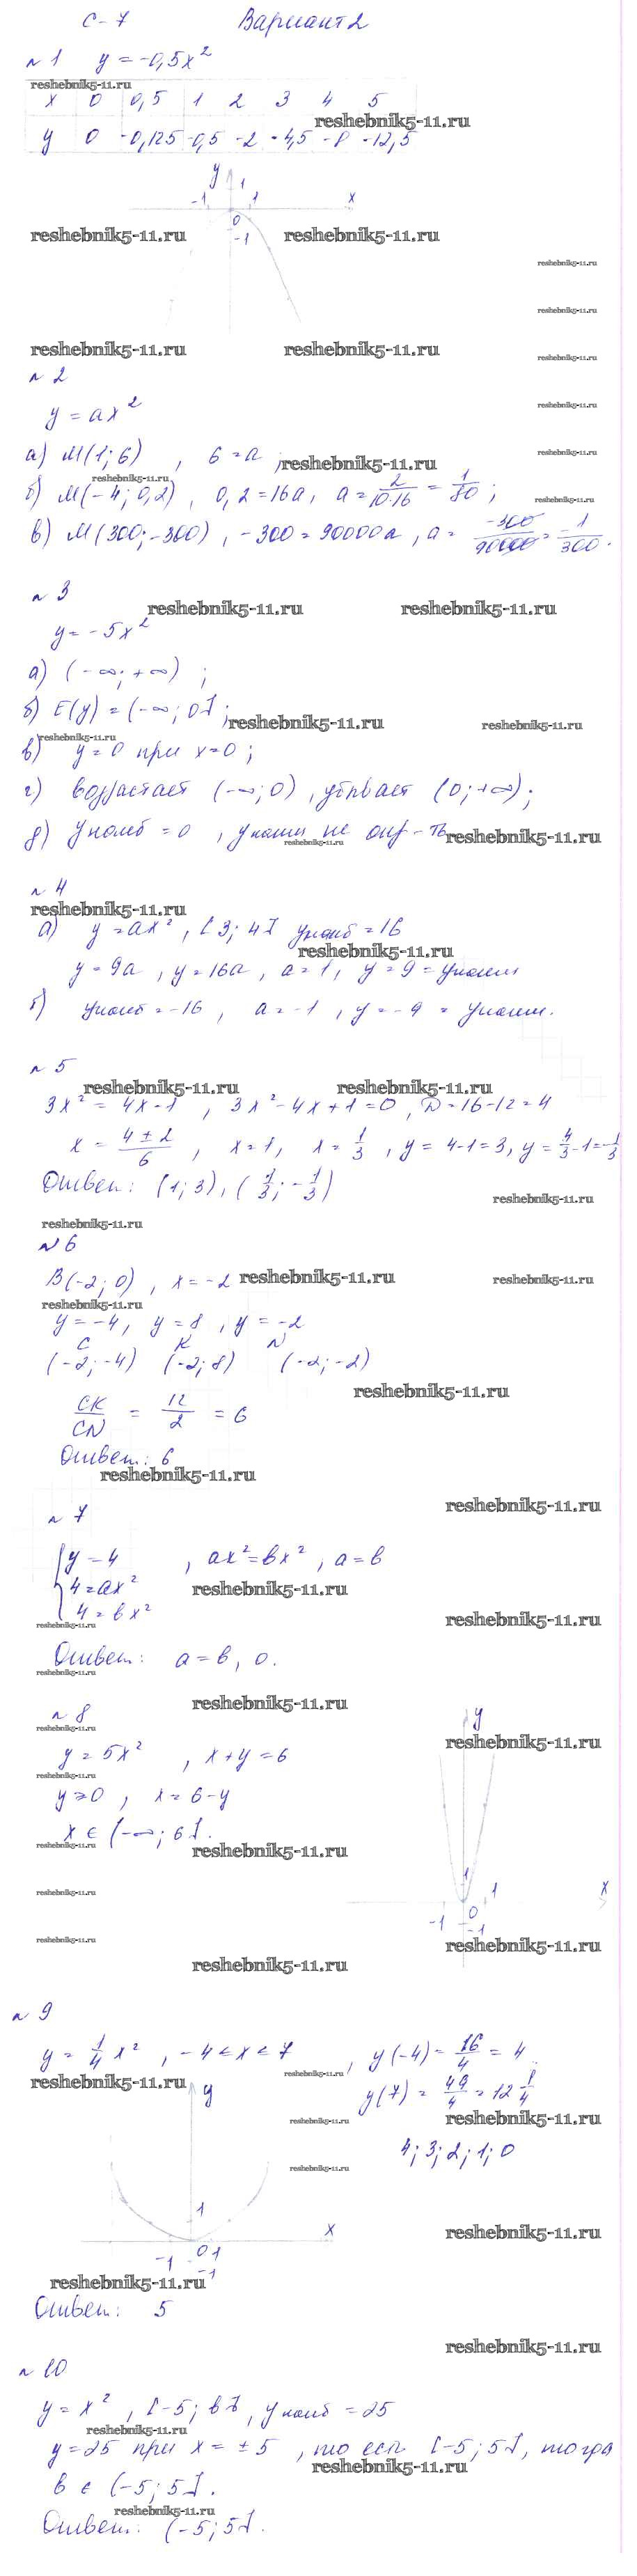 С-7 Вариант 2
№1 y = -0,5x²
reshebnik5-11.ru
x 0 0,5 1 2 3 4 5
reshebnik5-11.ru
y 0 -0,125 -0,5 -2 -4,5 -8 -12,5
y 1
-1 1 x
0
reshebnik5-11.ru reshebnik5-11.ru
-1
reshebnik5-11.ru
reshebnik5-11.ru
reshebnik5-11.ru reshebnik5-11.ru reshebnik5-11.ru
№2
reshebnik5-11.ru
y = ax²
а) M(1; 6) , 6 = a ; reshebnik5-11.ru reshebnik5-11.ru
reshebnik5-11.ru
б) M(-4; 0,2) , 0,2 = 16a , a = 2/10·16 = 1/80 ; reshebnik5-11.ru
в) M(300; -300) , -300 = 90000a , a = -300/90000 = -1/300 .
№3
reshebnik5-11.ru reshebnik5-11.ru
y = -5x²
а) (-∞; +∞) ;
б) E(y) = (-∞; 0] ; reshebnik5-11.ru reshebnik5-11.ru
reshebnik5-11.ru
в) y = 0 при x = 0 ;
г) возрастает (-∞; 0) , убывает (0; +∞) ;
д) y наиб = 0 , y наим не опр-ть reshebnik5-11.ru
reshebnik5-11.ru
№4
reshebnik5-11.ru
а) y = ax² , [3; 4] yнаиб = 16
reshebnik5-11.ru
y = 9a , y = 16a , a = 1 , y = 9 = yнаим
б) yнаиб = -16 , a = -1 , y = -9 = yнаим.
№5
reshebnik5-11.ru reshebnik5-11.ru
3x² = 4x-1 , 3x² - 4x + 1 = 0 , D = 16-12 = 4
x = 4 ± 2/6 , x = 1 , x = 1/3 , y = 4-1 = 3 , y = 4/3 - 1 = -1/3
Ответ: (1; 3) , (1/3; -1/3)
reshebnik5-11.ru
reshebnik5-11.ru
№6
B(-2; 0) , x = -2 reshebnik5-11.ru reshebnik5-11.ru
reshebnik5-11.ru
y = -4 , y = 8 , y = -2
C K N
(-2; -4) (-2; 8) (-2; -2)
reshebnik5-11.ru
CK/CN = 12/2 = 6
Ответ: 6
reshebnik5-11.ru
reshebnik5-11.ru
№7
{ y = 4 , ax² = bx² , a = b
4 = ax² reshebnik5-11.ru
4 = bx²
reshebnik5-11.ru reshebnik5-11.ru
Ответ: a = b , 0.
reshebnik5-11.ru
reshebnik5-11.ru
№8 y
reshebnik5-11.ru reshebnik5-11.ru
y = 5x² , x + y = 6
reshebnik5-11.ru
y ≥ 0 , x = 6 - y
x ∈ (-∞; 6] .
reshebnik5-11.ru reshebnik5-11.ru
1
reshebnik5-11.ru -1 0 1 x
-1
reshebnik5-11.ru reshebnik5-11.ru
reshebnik5-11.ru
№9
y = 1/4 x² , -4 < x < 7 , y(-4) = 16/4 = 4
reshebnik5-11.ru reshebnik5-11.ru
y y(7) = 49/4 = 12 1/4
reshebnik5-11.ru reshebnik5-11.ru
4; 3; 2; 1; 0
reshebnik5-11.ru
1 x reshebnik5-11.ru
-1 0 1
-1
reshebnik5-11.ru
Ответ: 5
reshebnik5-11.ru
№10
y = x² , [-5; b] , y наиб = 25
reshebnik5-11.ru
y = 25 при x = ±5 , то есть [-5; 5] , тогда
reshebnik5-11.ru
b ∈ (-5; 5] .
reshebnik5-11.ru
Ответ: (-5; 5] .